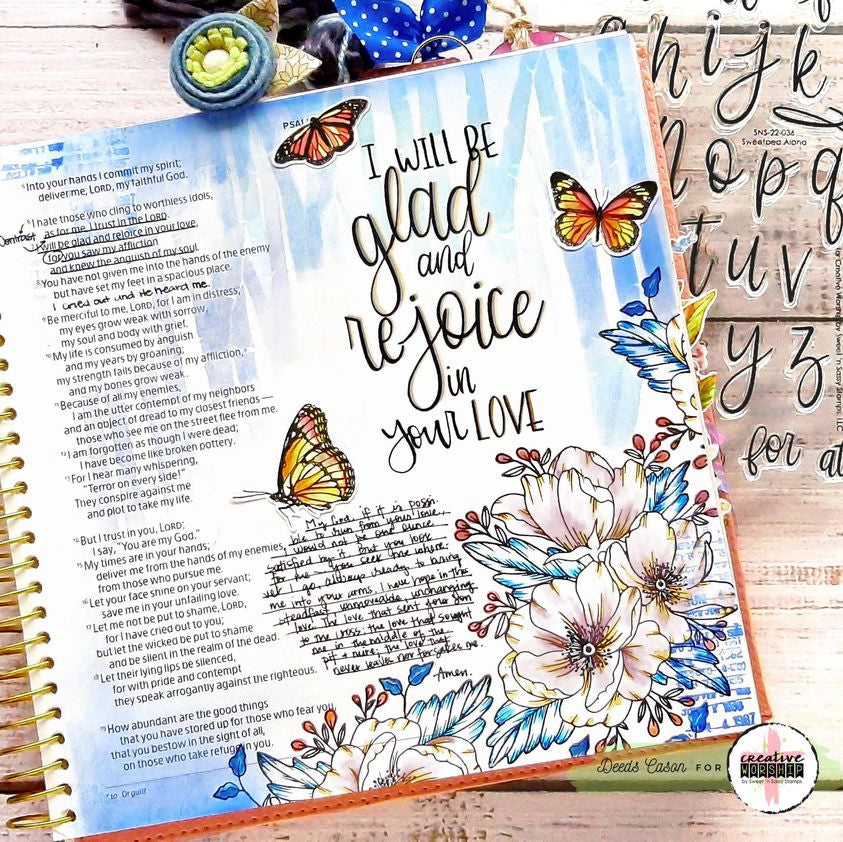 PSAL
⁵Into your hands I commit my spirit;
deliver me, LORD, my faithful God.
⁶I hate those who cling to worthless idols;
contrast as for me, I trust in the LORD.
⁷I will be glad and rejoice in your love,
for you saw my affliction
and knew the anguish of my soul.
⁸You have not given me into the hands of the enemy
but have set my feet in a spacious place.
I cried out and He heard me.
⁹Be merciful to me, LORD, for I am in distress;
my eyes grow weak with sorrow,
my soul and body with grief.
¹⁰My life is consumed by anguish
and my years by groaning;
my strength fails because of my affliction,
and my bones grow weak.
¹¹Because of all my enemies,
I am the utter contempt of my neighbors
and an object of dread to my closest friends—
those who see me on the street flee from me.
¹²I am forgotten as though I were dead;
I have become like broken pottery.
¹³For I hear many whispering,
"Terror on every side!"
They conspire against me
and plot to take my life.
¹⁴But I trust in you, LORD;
I say, "You are my God."
¹⁵My times are in your hands;
deliver me from the hands of my enemies,
from those who pursue me.
¹⁶Let your face shine on your servant;
save me in your unfailing love.
¹⁷Let me not be put to shame, LORD,
for I have cried out to you;
but let the wicked be put to shame
and be silent in the realm of the dead.
¹⁸Let their lying lips be silenced,
for with pride and contempt
they speak arrogantly against the righteous.
¹⁹How abundant are the good things
that you have stored up for those who fear you,
that you bestow in the sight of all,
on those who take refuge in you.
10 Or guilt
I WILL BE
glad
and
rejoice
in
your LOVE
My God, if it is possi-
ble to run from your love,
I would not be one ounce
satisfied by it. But you look
for me. you seek me where
I go, always ready to bring
me into your arms. I have hope in this
steadfast, unmoveable, unchanging
love. The love that sent your Son
to the cross, the love that sought
me in the middle of the
pit & mire, the love that
never leaves nor forsakes me.
Amen.
h i j k
n o p q
t u v
y z
for at
SNS-22-036
Sweetpea Alpha
for Creative Worship by Sweet 'n Sassy Stamps, LLC
Deeds Cason FOR
creative
WORSHIP
by Sweet 'n Sassy Stamps